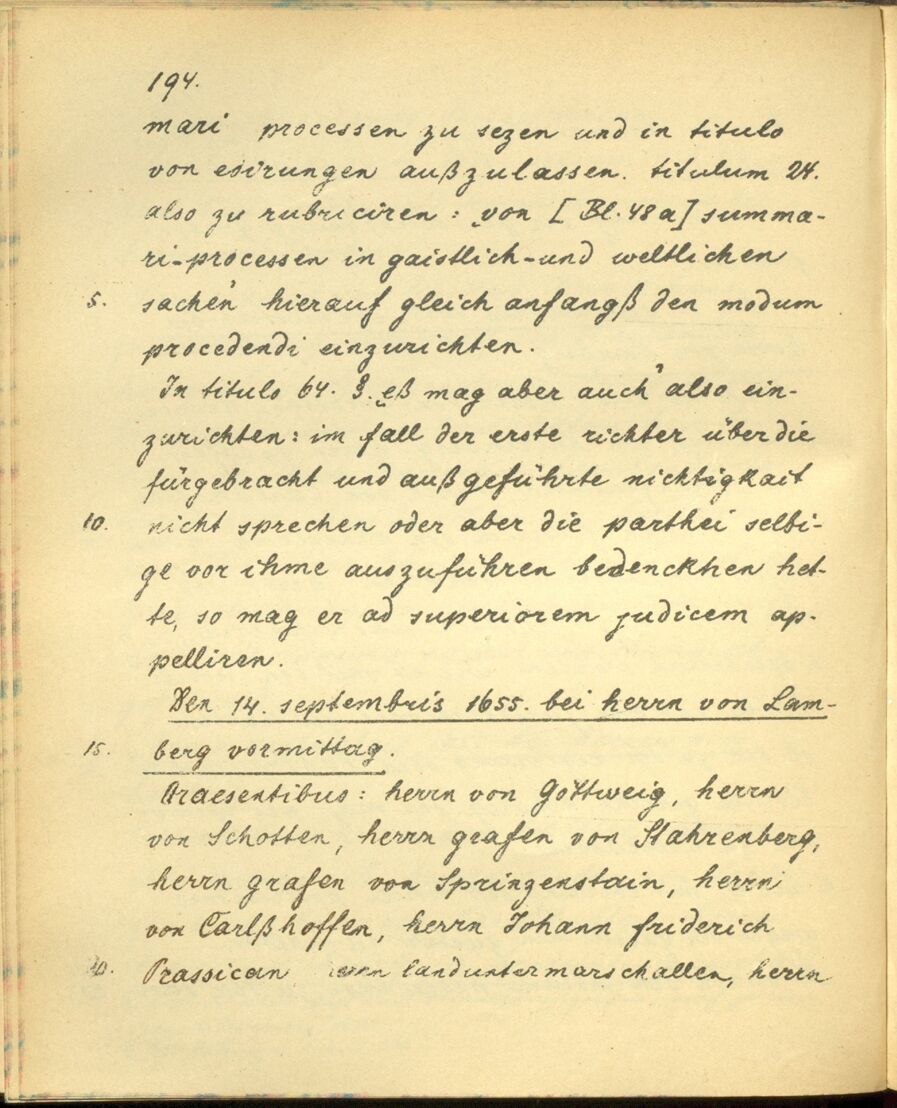 194.
mari processen zu sezen und in titulo
von edirungen außzulassen. titulum 24.
also zu rubriciren: „von [Bl. 48a] summa-
ri-processen in gaistlich- und weltlichen
5. sachen" hierauf gleich anfangß den modum
procedendi einzurichten.
In titulo 64. §. „eß mag aber auch" also ein-
zurichten: im fall der erste richter über die
fürgebracht und außgeführte nichtigkait
10. nicht sprechen oder aber die parthei selbi-
ge vor ihme auszuführen bedenckhen het-
te, so mag er ad superiorem judicem ap-
pelliren.
Den 14. septembris 1655. bei herrn von Lam-
15. berg vormittag.
Praesentibus: herrn von Göttweig, herrn
von Schotten, herrn grafen von Stahrenberg,
herrn grafen von Springenstain, herrn
von Carlßhoffen, herrn Johann friderich
20. Prassican landuntermarschallen, herrn